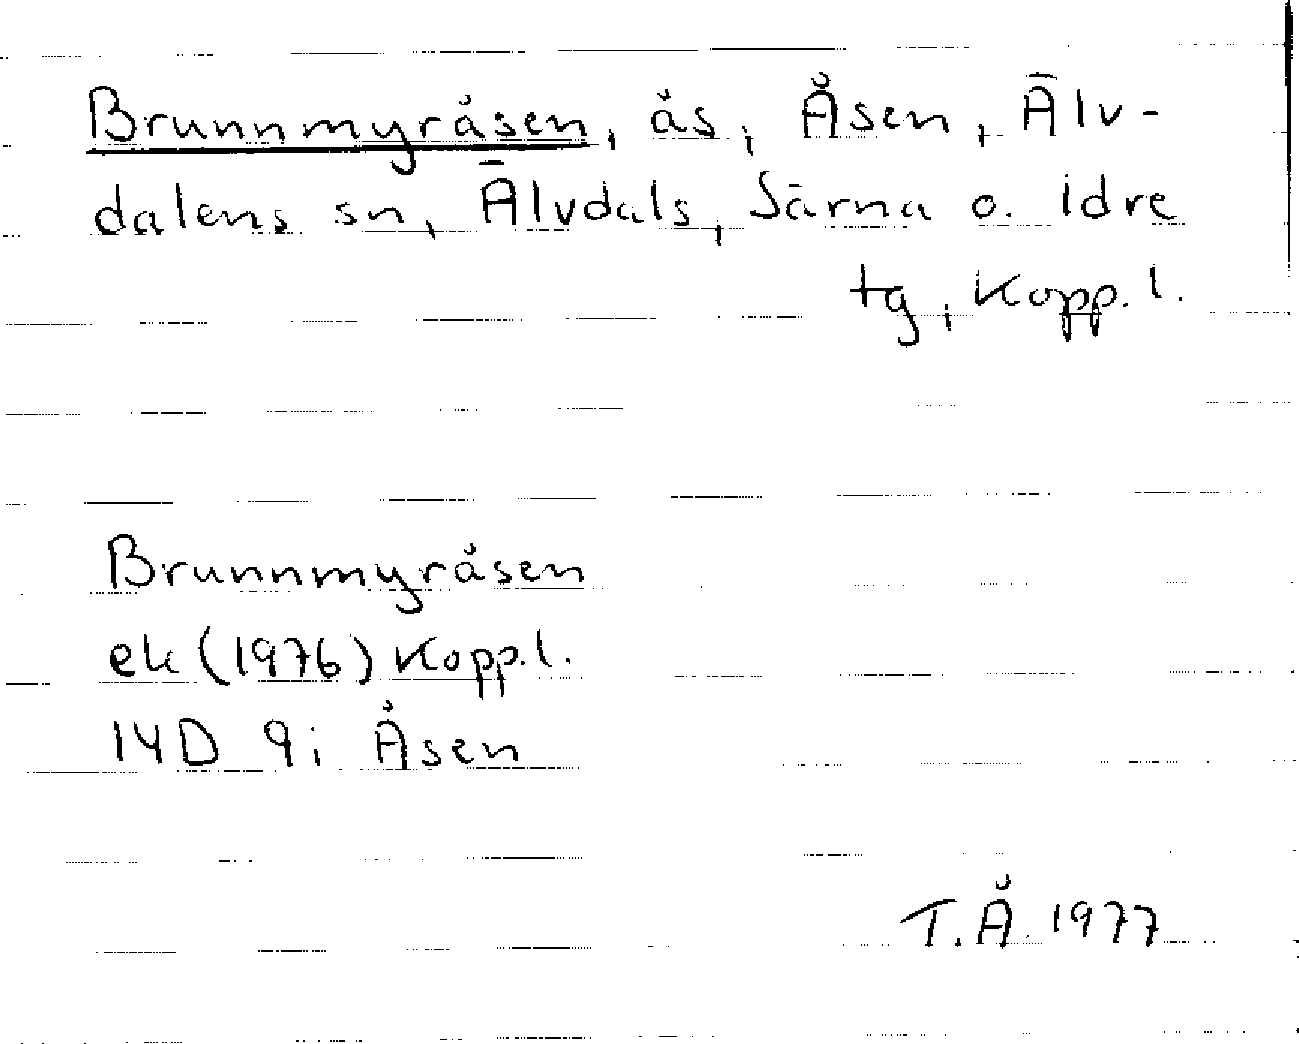 Brunnmyråsen, ås, Åsen, Älv-
dalens sn, Älvdals, Särna o. Idre
tg, Kopp. l.
Brunnmyråsen
ek (1976) Kopp. l.
14D 9i Åsen
T.Å. 1977